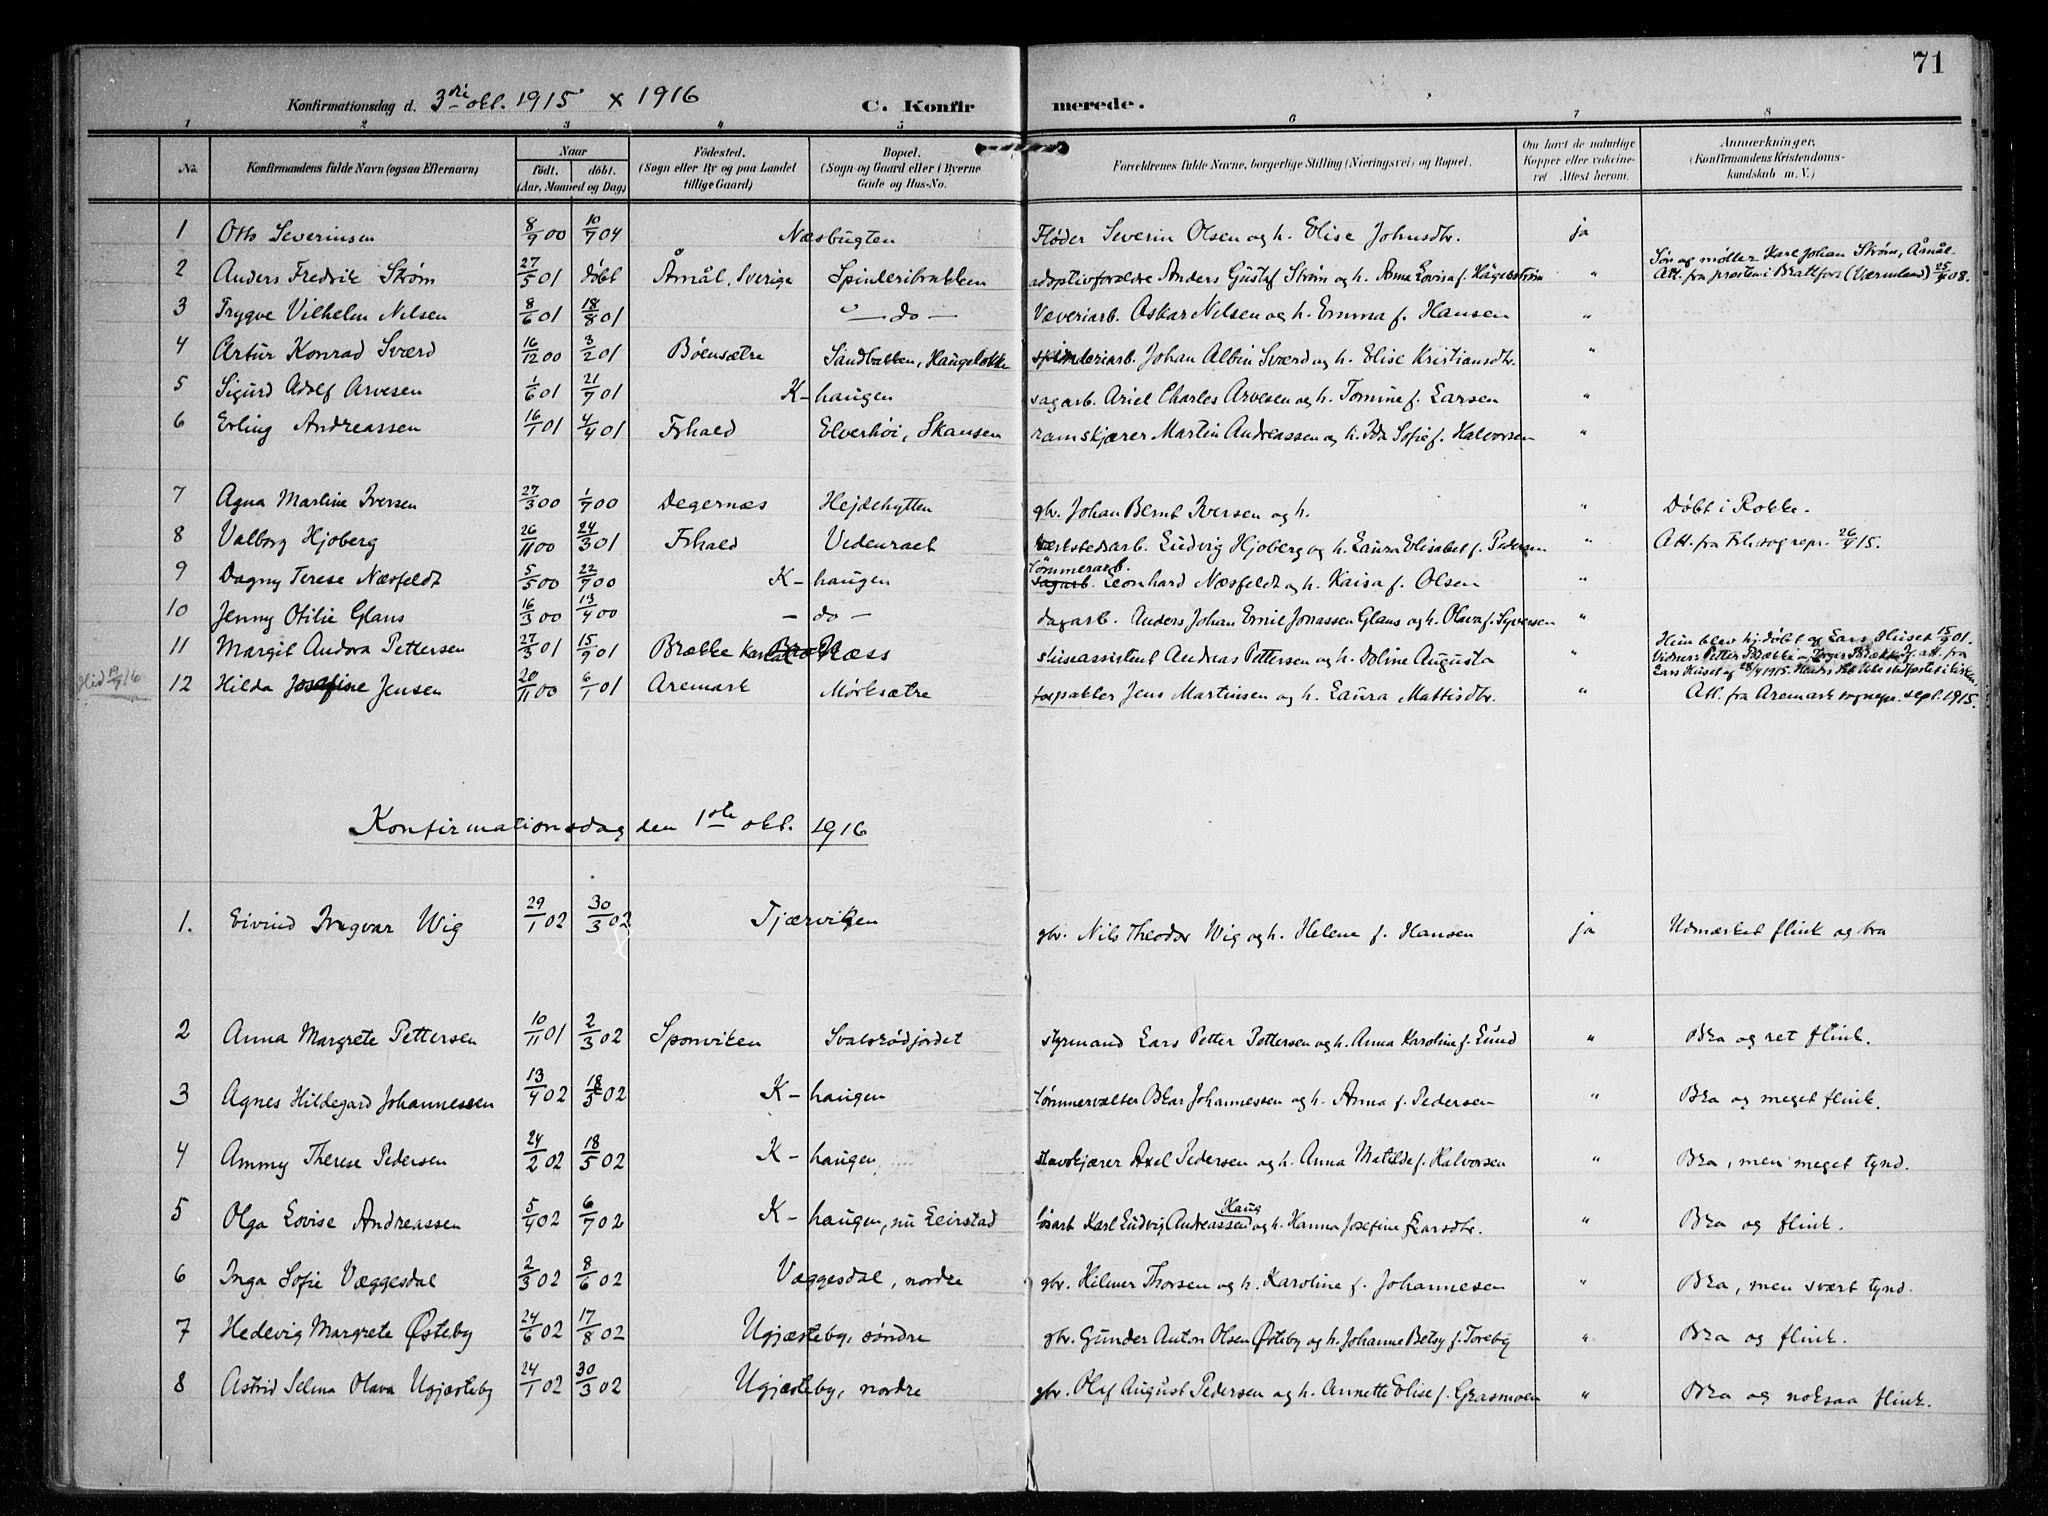 71
Konfirmationsdag d. 3die okt. 1915 x 1916 C. Konfirmerede.
1 2 3 4 5 6 7 8
No. Konfirmandens fulde Navn (ogsaa Efternavn) Naar født. døbt. (Aar, Maaned og Dag) Fødested. (Sogn eller By og paa Landet tillige Gaard) Bopæl. (Sogn og Gaard eller i Byerne Gade og Hus-No. Forældrenes fulde Navne, borgerlige Stilling (Næringsvei) og Bopæl. Om havt de naturlige Kopper eller vaccineret Attest herom. Anmerkninger. (Konfirmandens Kristendomskundskab m. V.)
1 Otto Severinsen 8/9 00 10/7 04 Næsbugten Fløder Severin Olsen og h. Elise Johnsdtr. ja
2 Anders Fredrik Strøm 27/5 01 døbt Åmål, Sverige Spinderibakken adoptivforældre Anders Gustaf Strøm og h. Anna Lovisa f. Hägebström " Søn og møller Karl Johan Strøm, Åmål. Att. fra prosten i Brattfors (Værmland) 25/4 08.
3 Trygve Vilhelm Nilsen 8/6 01 18/8 01 " — do — Væveriarb. Oskar Nilsen og h. Emma f. Hansen "
4 Artur Konrad Sværd 16/12 00 3/2 01 Bøensætre Sandbakken, Haugeløkken spinderiarb. Johan Albin Sværd og h. Elise Kristiansdtr. "
5 Sigurd Adolf Arvesen 1/6 01 21/7 01 K-haugen sagarb. Ariel Charles Arvesen og h. Tomine f. Larsen "
6 Erling Andreassen 16/1 01 4/4 01 Frhald Elverhøi, Skansen ramskjærer Martin Andreassen og h. Ida Sofie f. Halvorsen "
7 Agna Martine Iversen 27/3 00 1/7 00 Degernæs Hejdehytten gbr. Johan Bernt Iversen og h. " Døbt i Rokke.
8 Valborg Hjoberg 26/11 00 24/3 01 Frhald Vedenraet værkstedsarb. Ludvig Hjoberg og h. Laura Elisabet f. Pedersen " Att. fra Frh. sogrepr. 26/4 15.
9 Dagny Terese Næsfeldt 5/5 00 22/7 00 K-haugen tømmerarb. Leonhard Næsfeldt og h. Kaisa f. Olsen "
10 Jenny Otilie Glans 16/3 00 13/4 00 — do — dagarb. Anders Johan Emil Jonassen Glans og h. Olava f. Syversen "
11 Margit Andora Pettersen 27/3 01 15/9 01 Brække Næss skiseassistent Andreas Pettersen og h. Doline Augusta " Hun blev hj.døbt og Lars Huset 15/9 01. Vidner: Petter Brække og Inger Brække. Jf. att. fra Lars Huset og 28/4 1915.
12 Hilda Josafine Jensen 20/11 00 6/1 01 Aremark Mørksætre Jens Martinsen og h. Laura Mattisdtr. " Att. fra Aremark sognepr. sept. 1915.
Konfirmationsdag den 1ste okt. 1916
1. Eivind Ingvar Wig 29/1 02 30/3 02 Tjærviken gbr. Nils Theodor Wig og h. Helene f. Hansen ja Udmærket flink og bra
2 Anna Margrete Pettersen 10/11 01 2/3 02 Sponviken Svalerødjordet styrmand Lars Petter Pettersen og h. Anna Karoline f. Lund " Bra og ret flink.
3 Agnes Hildegard Johannessen 13/4 02 18/5 02 K-haugen tømmervælter Olar Johannessen og h. Anna f. Pedersen " Bra og meget flink.
4 Ammy Therese Pedersen 24/2 02 18/5 02 K-haugen stavskjærer Axel Pedersen og h. Anna Matilde f. Halvorsen " Bra, men meget tynd.
5 Olga Lovise Andreassen 5/4 02 6/7 02 K-haugen, nu Leirstad løsarb Karl Ludvig Andreassen Haug og h. Hanna Josefine Larsdtr. " Bra og flink.
6 Inga Sofie Væggesdal 2/3 02 8/6 02 Væggesdal, nordre gbr. Hilmer Thorsen og h. Karoline f. Johannesen " Bra, men svært tynd.
7 Hedevig Margrete Østeby 24/6 02 17/8 02 Ugjæsteby, søndre gbr. Gunder Anton Olsen Østeby og h. Johanne Betsy f. Toreby " Bra og flink.
8 Astrid Selma Olava Ugjæsteby 24/1 02 30/3 02 Ugjæsteby, nordre gbr. Olaf August Pedersen og h. Annette Elise f. Grasmoen " Bra og noksaa flink.